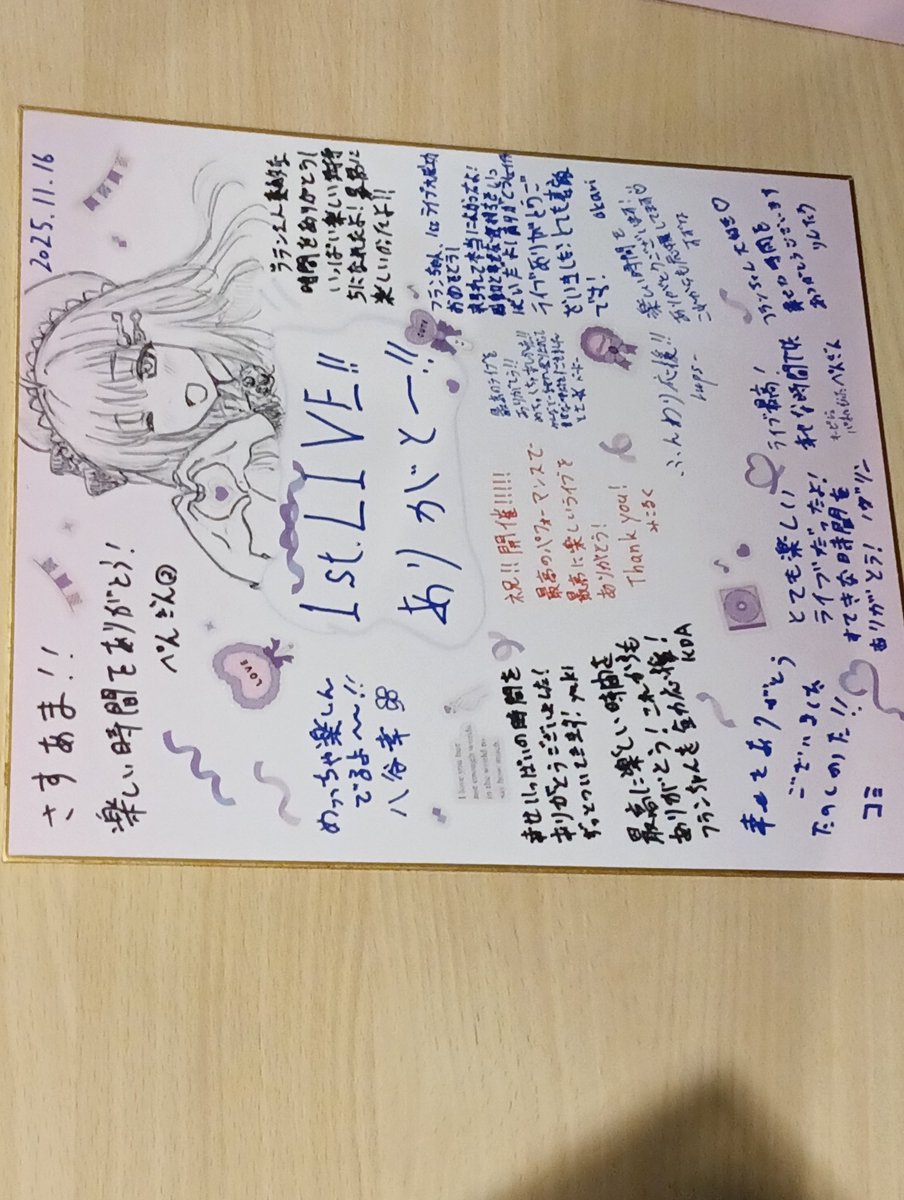 2025.11.16
さすあま!!
楽しい時間をありがとう!
ぺんぎん②
めっちゃ楽しん
でるよ〜〜!!
八谷幸
1st.LIVE!!
ありがとー!!
時間をありがとう!
いっぱい楽しい気持
ちになれたよ! 最高に
楽しかったよ!!
フランちゃん、1stライブ大成功
おめでとう!
ライブありがとう〜
ございました! とても素敵
です!
akari
最高のライブを
ありがとう!!
祝!!開催!!!!!
最高のパフォーマンスで
最高に楽しいライブを
ありがとう!
Thank you!
みこるく
楽しい時間を
ありがとうございます!
これからも応援してます
ふんわり応援!!
LOVE
LOVE
I love you but
not enough words
in the world to
say how much
幸せいっぱいの時間を
ありがとうございました!
ずっとついてきます! yuki
最高に楽しい時間を
ありがとう! これからも
フランちゃんを全力応援!
KDA
フランちゃん大好き♡
幸せの時間を
ありがとうございます
ライブ最高!
幸せな時間です
とても楽しい
ライブだったよ!
すてきな時間を
ありがとう! ノダリン
幸せをありがとう
ございました
たのしめた!!
コミ